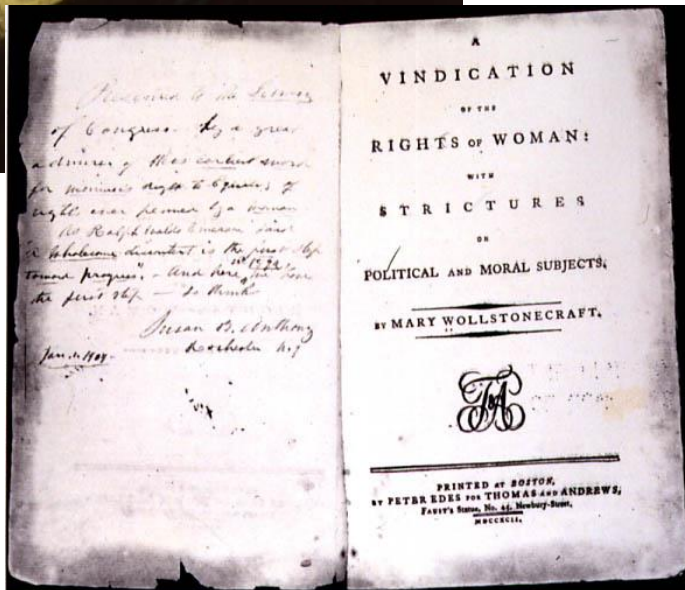 Presented to the Library
of Congress by a great
admirer of this earliest word
for woman's right to Equality of
rights ever penned by a woman
As Ralph Waldo Emerson said
"A Wholesome discontent is the first step
toward progress" - And here in 1792 we have
the first step - so thinks
Susan B. Anthony
Rochester N.Y.
Jan. 1. 1904 -
A
VINDICATION
OF THE
RIGHTS OF WOMAN:
WITH
STRICTURES
ON
POLITICAL AND MORAL SUBJECTS.
BY MARY WOLLSTONECRAFT.
T&A
PRINTED AT BOSTON,
BY PETER EDES FOR THOMAS AND ANDREWS,
FAUST'S Statue, No. 45, Newbury-Street,
MDCCXCII.